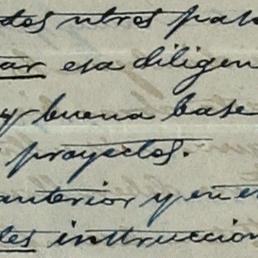 dos ntros pas
ar esa diligen
y buena base
proyectos.
anterior y en e
des instruccion